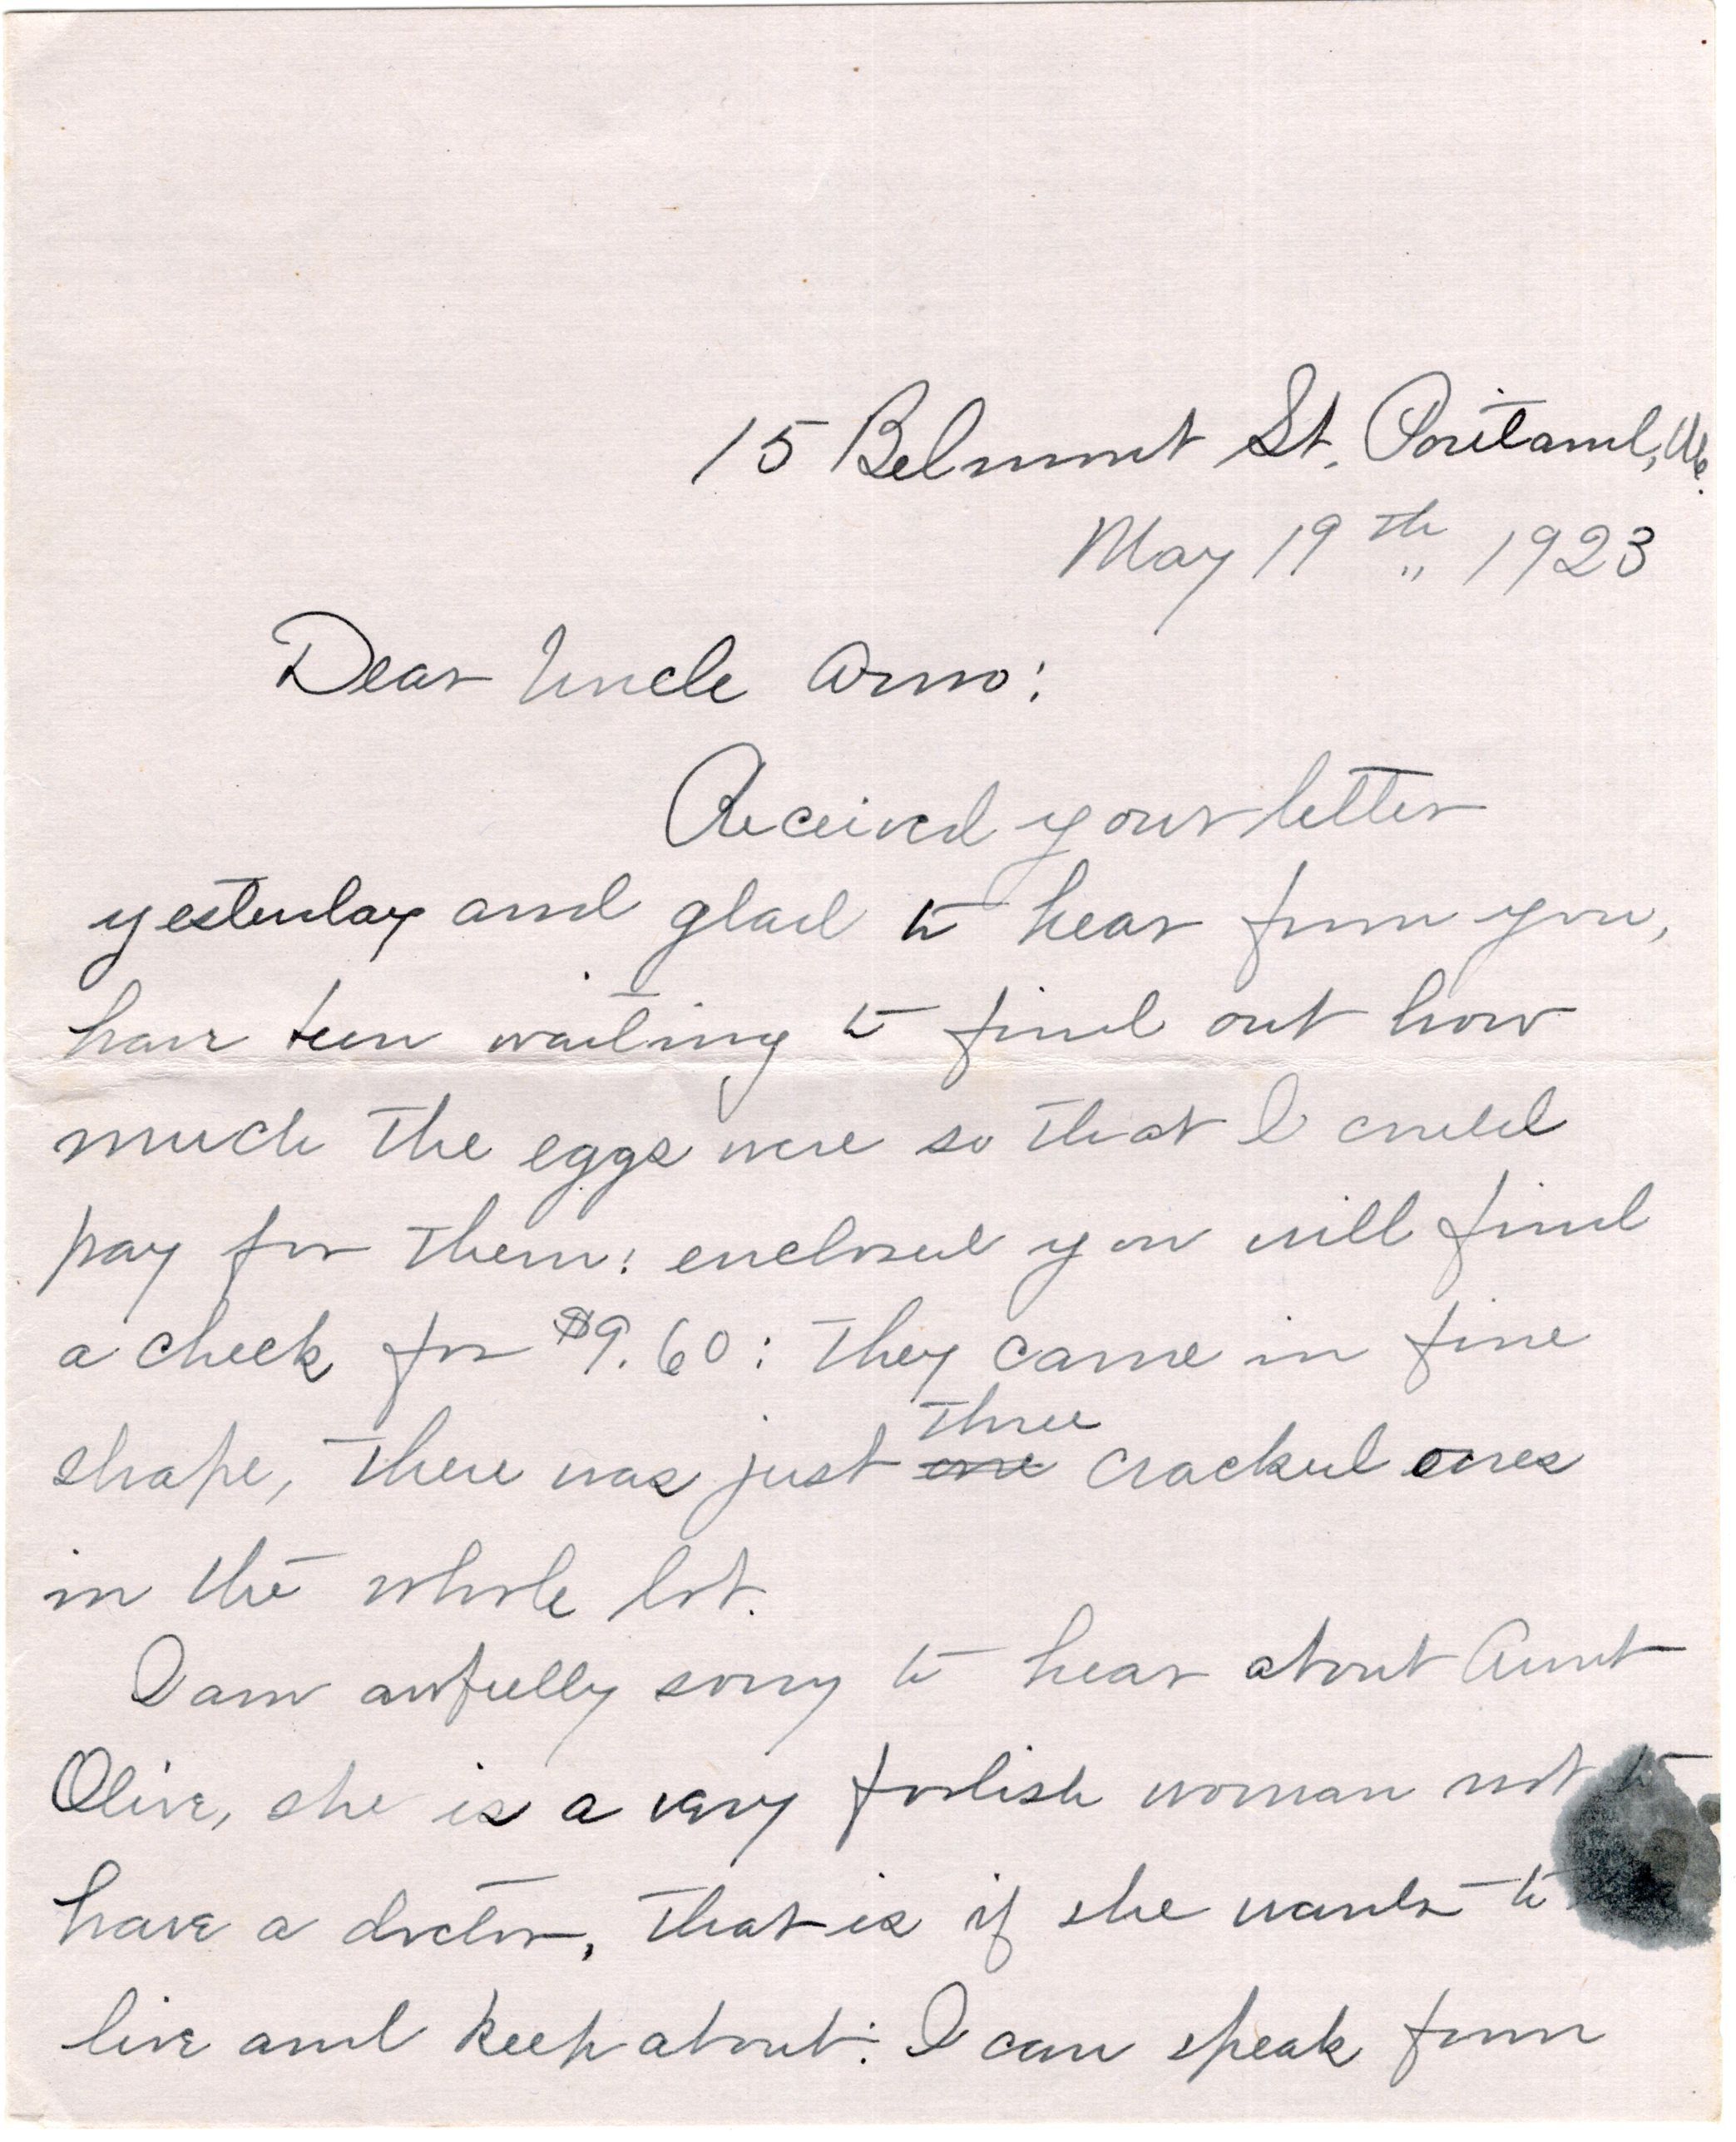 15 Belmont St. Portland, Me.
May 19th, 1923
Dear Uncle Arno:
Received your letter
yesterday and glad to hear from you,
have been waiting to find out how
much the eggs were so that I could
pay for them: enclosed you will find
a check for $9.60: they came in fine
shape, there was just one three cracked ones
in the whole lot.
I am awfully sorry to hear about Aunt
Olive, she is a very foolish woman not to
have a doctor, that is if she wants to
live and keep about: I can speak from